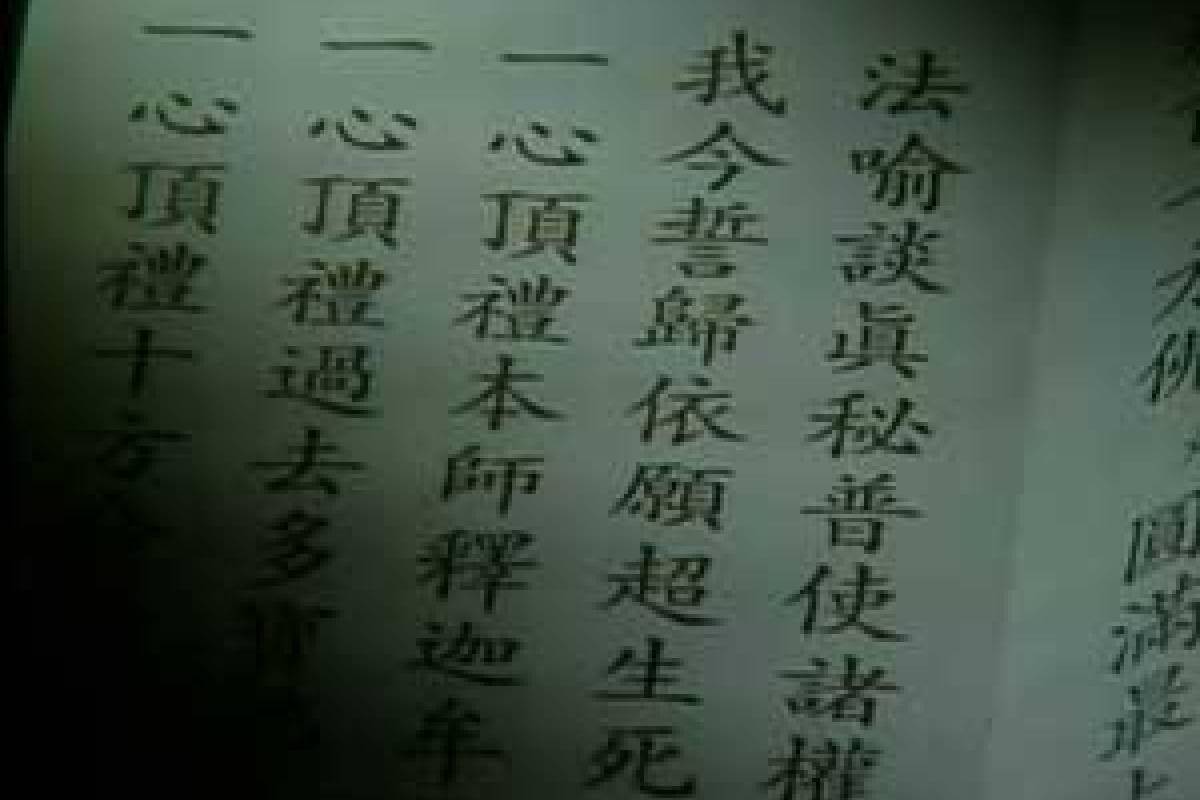 圓滿
法喻談眞秘普使諸權
我今誓歸依願超生死
一心頂禮本師釋迦牟
一心頂禮過去多寶
一心頂禮十方